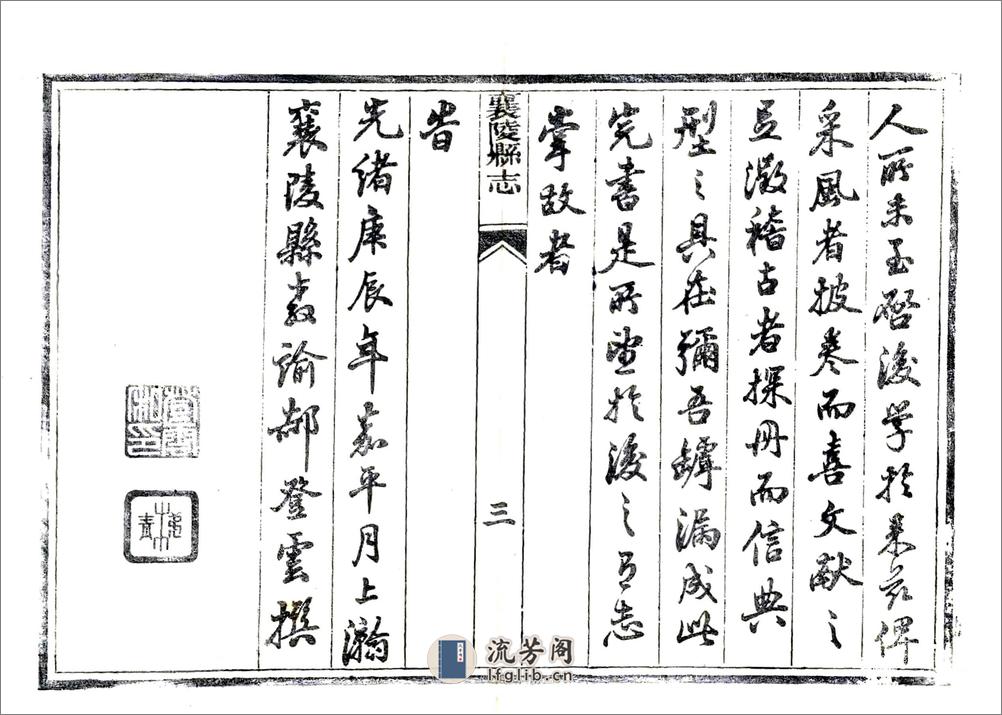 人所未至啓後學於來茲俾
采風者披卷而喜文獻之
足徵稽古者探冊而信典
型之具在彌吾罅漏成此
完書是所望於後之有志
掌故者
襄陵縣志
三
旹
光緒庚辰年嘉平月上澣
襄陵縣教諭郝登雲撰
流芳阁
lfglib.cn